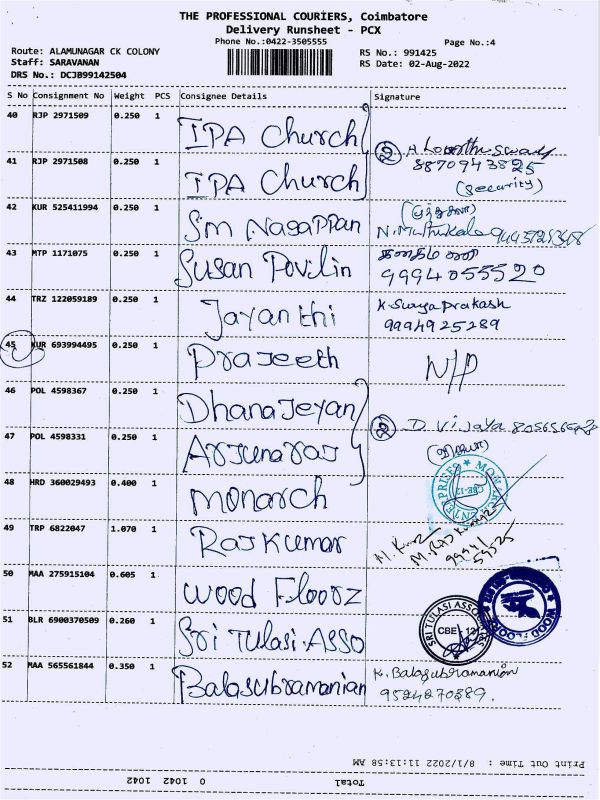 THE PROFESSIONAL COURIERS, Coimbatore
Delivery Runsheet - PCX
Phone No.:0422-3505555
Page No.:4
Route: ALAMUNAGAR CK COLONY
RS No.: 991425
Staff: SARAVANAN
RS Date: 02-Aug-2022
DRS No.: DCJB99142504
S No Consignment No Weight PCS Consignee Details Signature
40 RJP 2971509 0.250 1 IPA Church
8870943825
41 RJP 2971508 0.250 1 IPA Church
(Security)
42 KUR 525411994 0.250 1 Sm Nagappan
43 MTP 1171075 0.250 1 Susan Povilin
9994055520
44 TRZ 122059189 0.250 1 Jayanthi K. Surya prakash
9994925289
45 KUR 693994495 0.250 1 Prajeeth N/P
46 POL 4598367 0.250 1 Dhanajeyan
(2) D. Vijaya
47 POL 4598331 0.250 1 Arjunaraj
48 HRD 360029493 0.400 1 Monarch
MONARCH ENTERPRISES CBE-12
49 TRP 6822047 1.070 1 Rajkumar
M. Rajkumar
50 MAA 275915104 0.605 1 Wood Floorz
51 BLR 6900370509 0.260 1 Sri Tulasi.Asso
SRI TULASI ASSOCIATES CBE - 12
WOOD FLOORZ
52 MAA 565561844 0.350 1 Balasubramanian K. Balasubramanion
9524270289.
Print Out Time : 8/1/2022 11:13:58 AM
Total 1042 1042 0